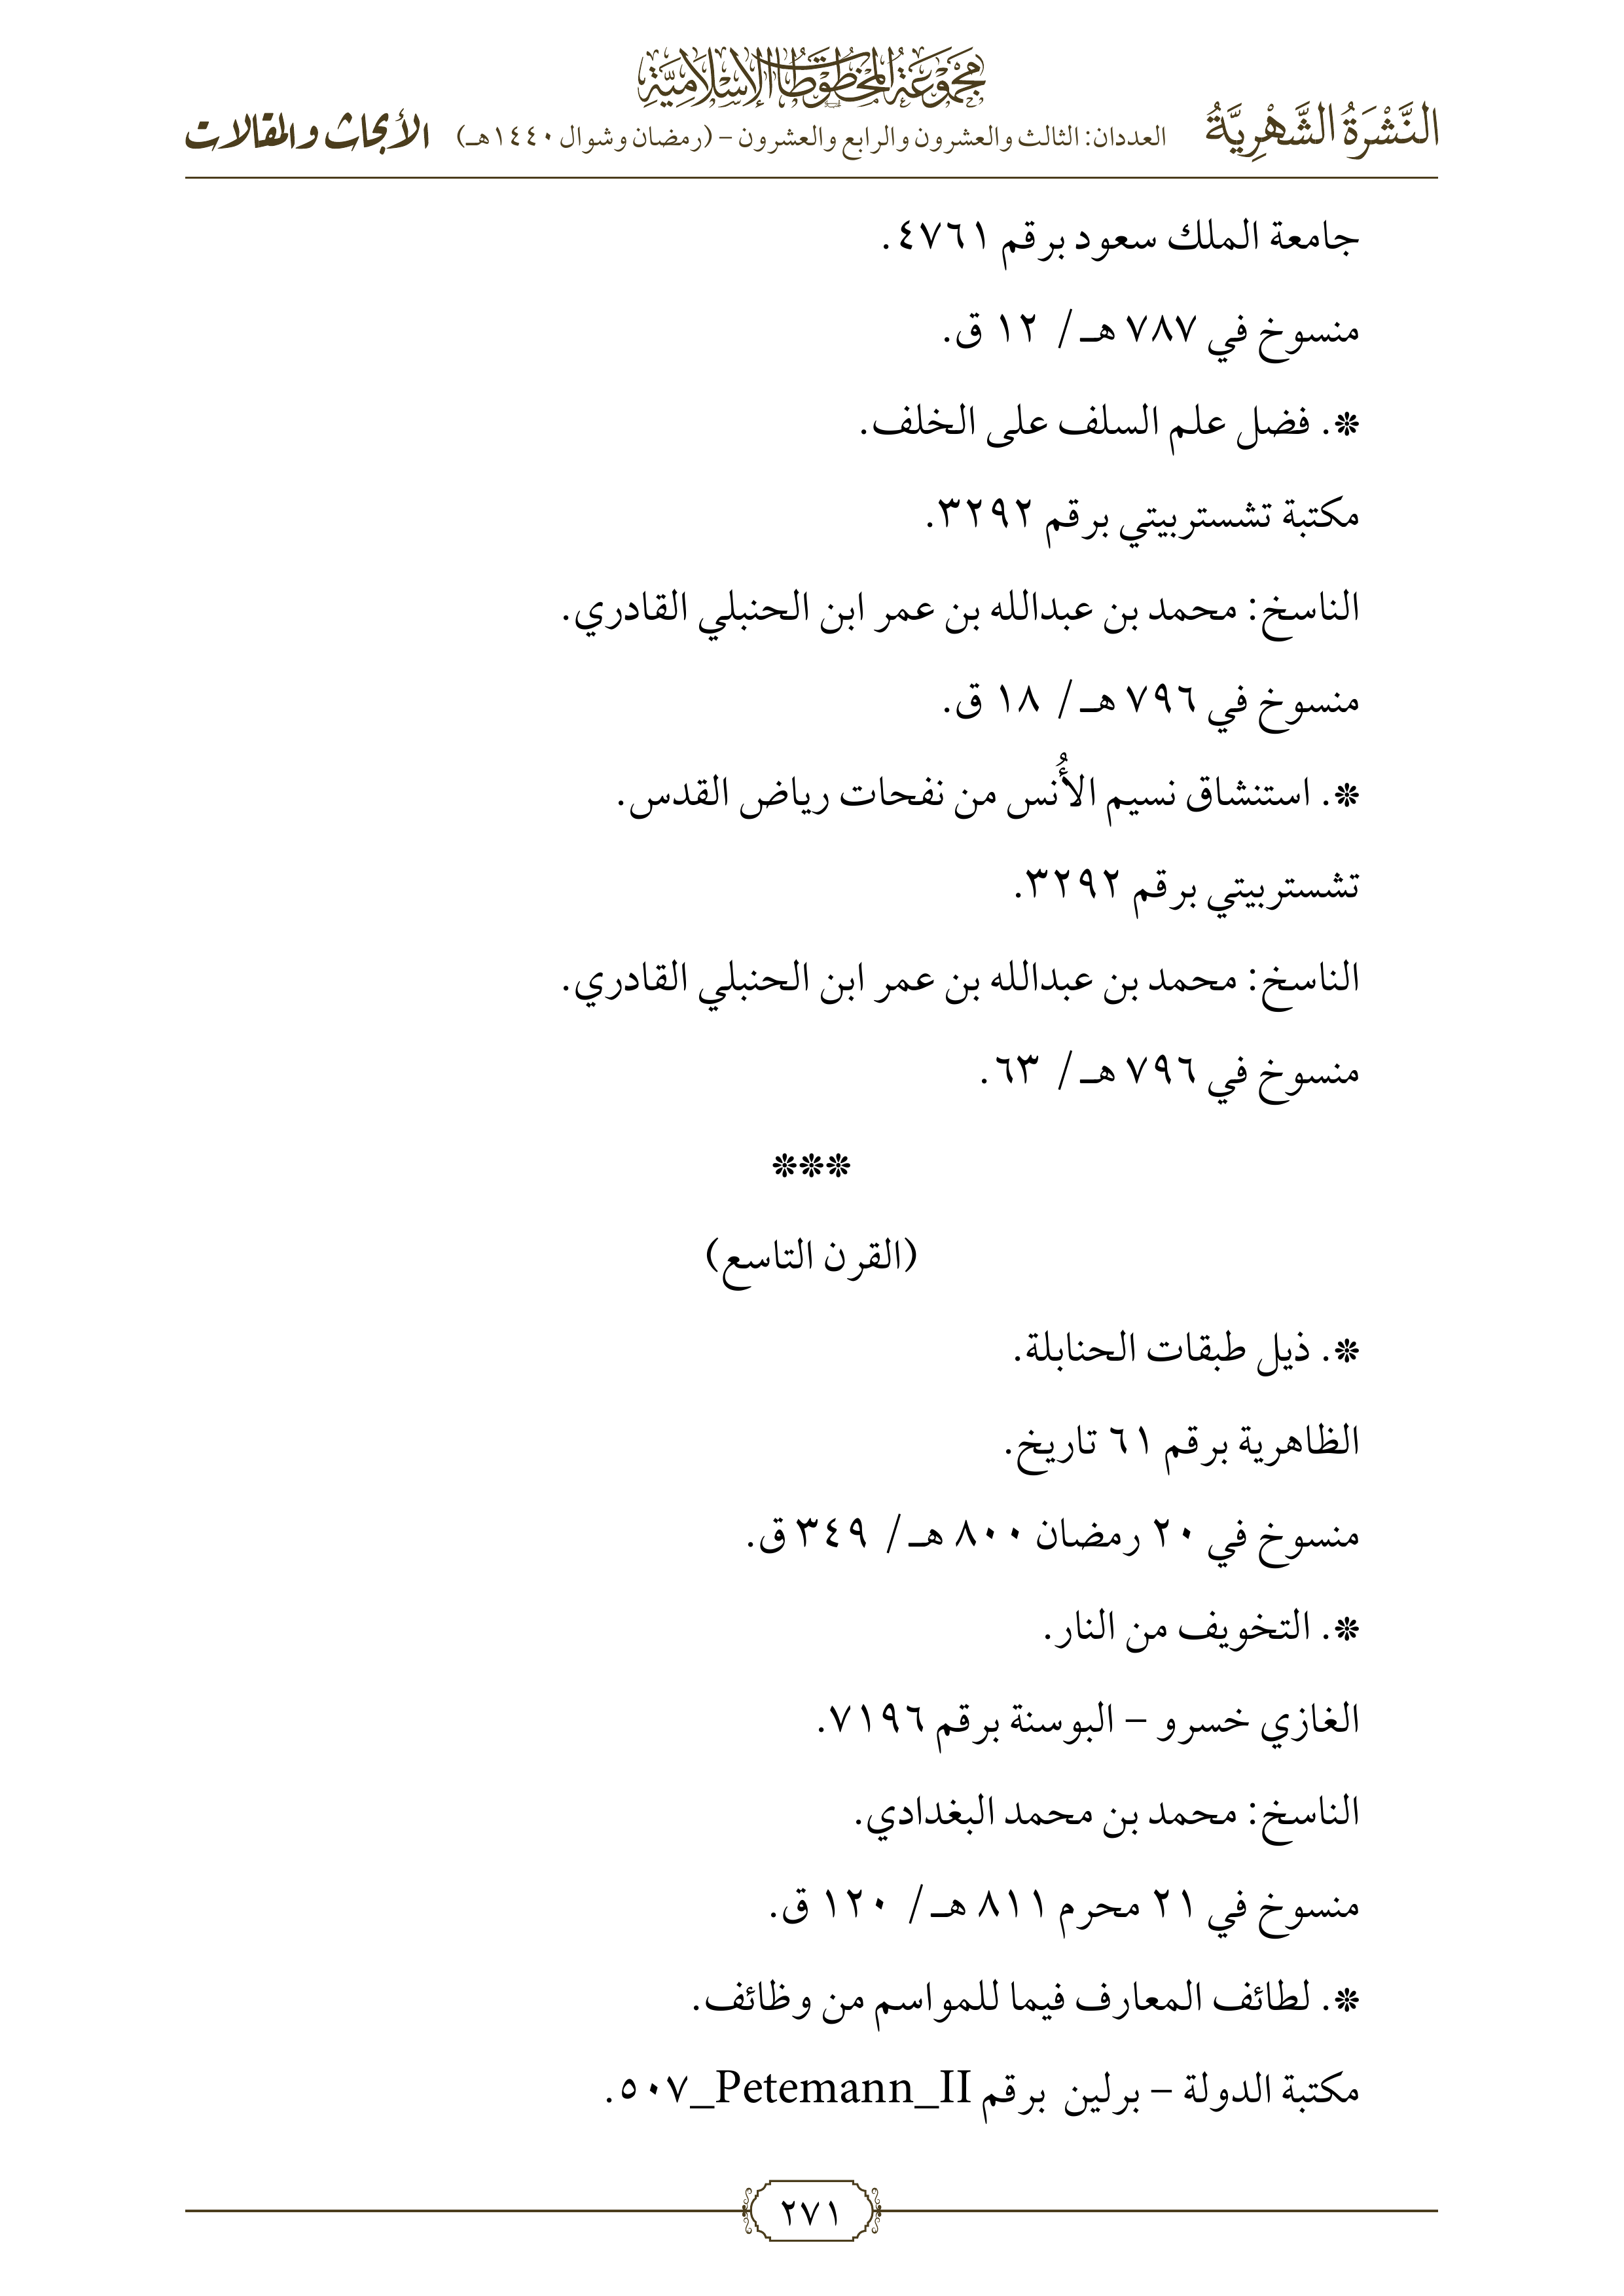 مَجْمُوعَةُ المَخْطُوطَاتِ الإِسْلَامِيَّةِ
النَّشْرَةُ الشَّهْرِيَّةُ العددان: الثالث والعشرون والرابع والعشرون – (رمضان وشوال ١٤٤٠هـ) الأبحاث والمقالات
جامعة الملك سعود برقم ٤٧٦١.
منسوخ في ٧٨٧ هـ/ ١٢ ق.
❊. فضل علم السلف على الخلف.
مكتبة تشستربيتي برقم ٣٢٩٢.
الناسخ: محمد بن عبدالله بن عمر ابن الحنبلي القادري.
منسوخ في ٧٩٦ هـ/ ١٨ ق.
❊. استنشاق نسيم الأُنس من نفحات رياض القدس.
تشستربيتي برقم ٣٢٩٢.
الناسخ: محمد بن عبدالله بن عمر ابن الحنبلي القادري.
منسوخ في ٧٩٦ هـ/ ٦٣.
❊❊❊
(القرن التاسع)
❊. ذيل طبقات الحنابلة.
الظاهرية برقم ٦١ تاريخ.
منسوخ في ٢٠ رمضان ٨٠٠ هـ/ ٣٤٩ ق.
❊. التخويف من النار.
الغازي خسرو – البوسنة برقم ٧١٩٦.
الناسخ: محمد بن محمد البغدادي.
منسوخ في ٢١ محرم ٨١١ هـ/ ١٢٠ ق.
❊. لطائف المعارف فيما للمواسم من وظائف.
مكتبة الدولة – برلين برقم Petemann_II_٥٠٧.
٢٧١